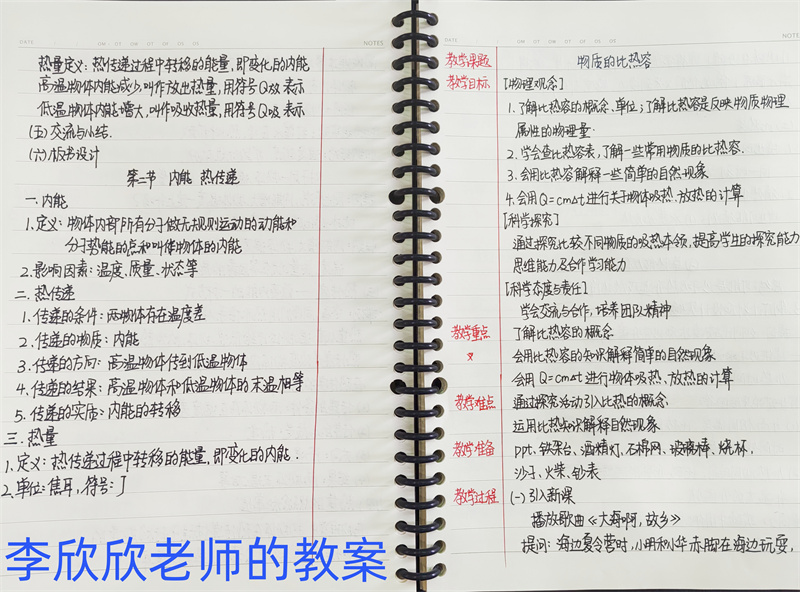 DATE
NOTES
热量定义：热传递过程中转移的能量，即变化的内能
高温物体内能减少，叫作放出热量，用符号Q放表示
低温物体内能增大，叫作吸收热量，用符号Q吸表示
(五)交流与小结.
(六)板书设计
第二节 内能 热传递
一.内能
1.定义：物体内部所有分子做无规则运动的动能和
分子势能的总和叫作物体的内能
2.影响因素：温度、质量、状态等
二.热传递
1.传递的条件：两物体存在温度差
2.传递的物质：内能
3.传递的方向：高温物体传到低温物体
4.传递的结果：高温物体和低温物体的末温相等
5.传递的实质：内能的转移
三.热量
1.定义：热传递过程中转移的能量，即变化的内能.
2.单位：焦耳，符号：J
李欣欣老师的教案
DATE
NOTES
教学课题 物质的比热容
教学目标 [物理观念]
1.了解比热容的概念、单位；了解比热容是反映物质物理
属性的物理量.
2.学会查比热容表，了解一些常用物质的比热容.
3.会用比热容解释一些简单的自然现象
4.会用Q=cm△t进行关于物体吸热.放热的计算
[科学探究]
通过探究比较不同物质的吸热本领，提高学生的探究能力
思维能力及合作学习能力
[科学态度与责任]
学会交流与合作，培养团队精神
教学重点 了解比热容的概念
会用比热容的知识解释简单的自然现象
会用Q=cm△t进行物体吸热、放热的计算
教学难点 通过探究活动引入比热的概念
运用比热知识解释自然现象
教学准备 ppt、铁架台、酒精灯、石棉网、玻璃棒、烧杯，
沙子、火柴、钟表
教学过程 (一)引入新课
播放歌曲《大海啊，故乡》
提问：海边夏令营时，小明和小华赤脚在海边玩耍，